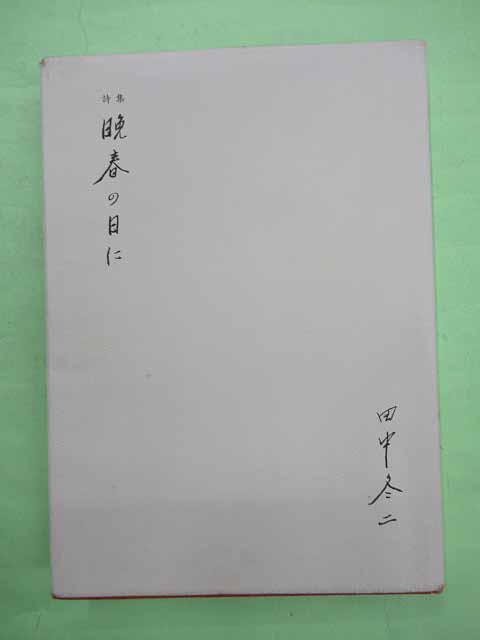 詩集
晩春の日に
田中冬二